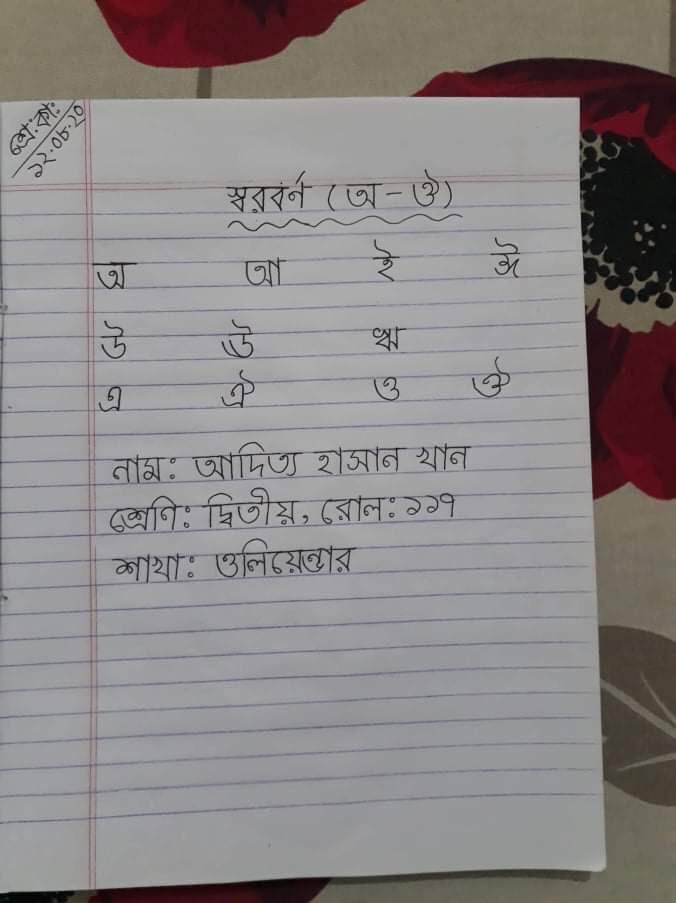 শ্রে:কা:
১২.০৮.২০
স্বরবর্ন (অ - ঔ)
অ আ ই ঈ
উ ঊ ঋ
এ ঐ ও ঔ
নাম: আদিত্য হাসান খান
শ্রেণি: দ্বিতীয়, রোল: ১১৭
শাখা: ওলিয়েন্ডার